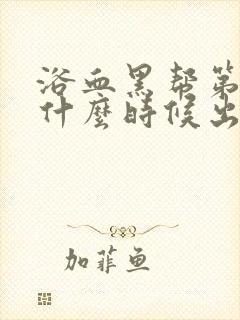 浴血黑帮第
什麼時候出
加菲鱼